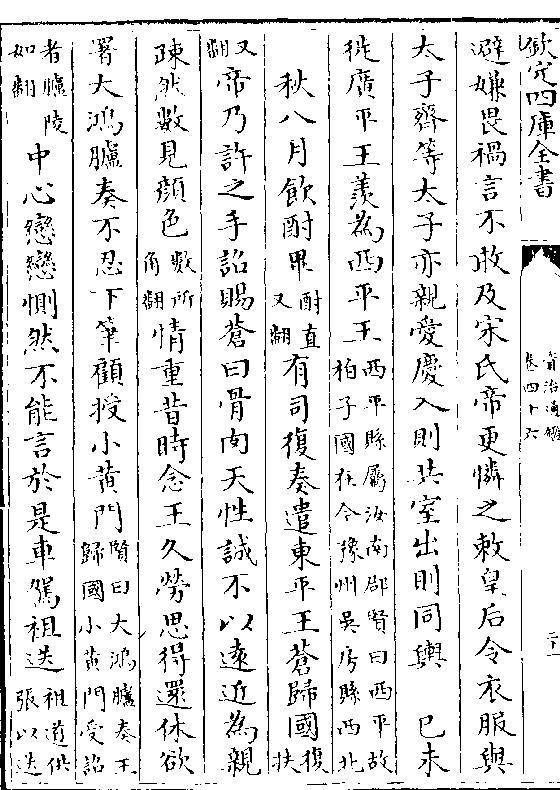 欽定四庫全書
資治通鑑
卷四十六
二十一
避嫌畏禍言不敢及宋氏帝更憐之敕皇后令衣服與
太子齊等太子亦親愛慶入則共室出則同輿　己未
徙廣平王羨為西平王西平縣屬汝南郡賢曰西平故柏子國在今豫州吳房縣西北
秋八月飲酎畢酎直又翻有司復奏遣東平王蒼歸國復扶
又翻帝乃許之手詔賜蒼曰骨肉天性誠不以遠近為親
疎然數見顔色數所角翻情重昔時念王久勞思得還休欲
署大鴻臚奏不忍下筆顧授小黄門賢曰大鴻臚奏王歸國小黄門受詔
者臚陵如翻中心戀戀惻然不能言於是車駕祖送祖道供張以送